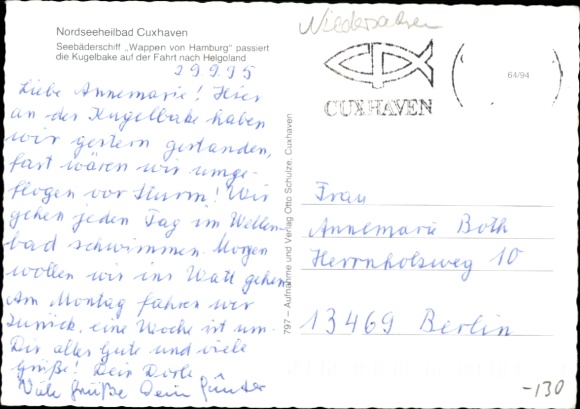 Nordseeheilbad Cuxhaven
Seebäderschiff „Wappen von Hamburg" passiert
die Kugelbake auf der Fahrt nach Helgoland
29.9.95
Liebe Annemarie! Hier
an der Kugelbake haben
wir gestern gestanden,
fast wären wir umge-
flogen vor Sturm! Wir
gehen jeden Tag im Wellen
bad schwimmen. Morgen
wollen wir ins Watt gehen
Am Montag fahren wir
zurück, eine Woche ist um.
Dir alles Gute und viele
Grüße! Dein Dorle
Viele Grüße Dein Günter
797 – Aufnahme und Verlag Otto Schulze, Cuxhaven
Niedersachsen
CUXHAVEN
64/94
Frau
Annemarie Both
Herrnholzweg 10
13469 Berlin
-130